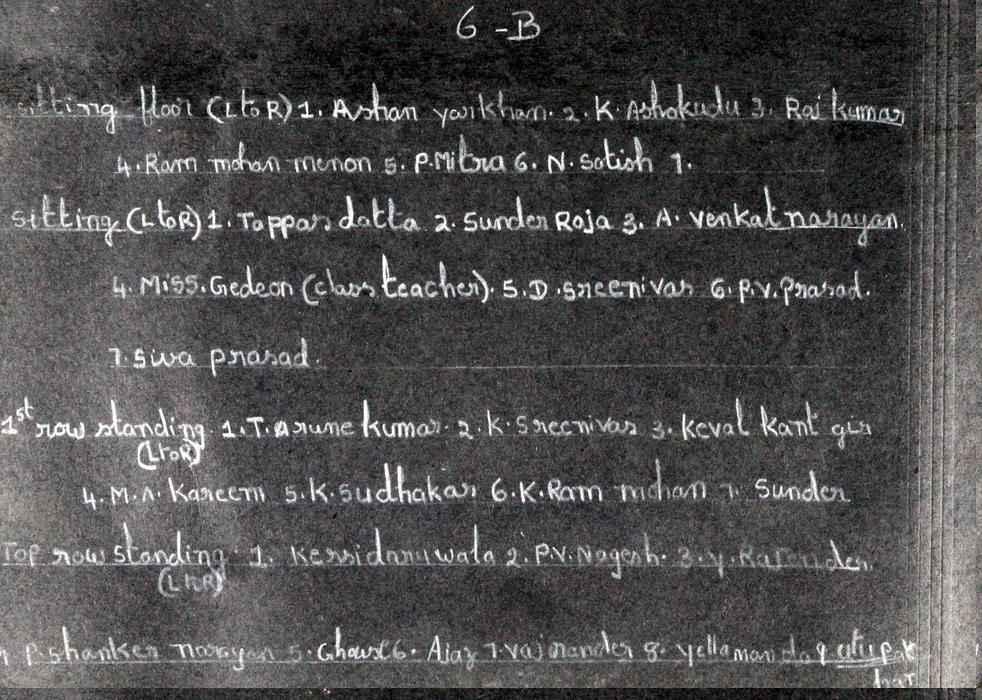 6 - B
sitting floor (L to R) 1. Ashan yarkhan. 2. K. Ashokudu 3. Raj kumar
4. Ram mohan menon 5. P. Mitra 6. N. Satish 7.
sitting (L to R) 1. Toppas datta 2. Sunder Raja 3. A. Venkat narayan.
4. Miss. Gedeon (class teacher). 5. D. Sreenivas 6. P. V. Prasad.
7. Siva prasad.
1st row standing 1. T. Arune kumar. 2. K. Sreenivas 3. Keval kant gir
(L to R)
4. M. A. Kareem 5. K. Sudhakar 6. K. Ram mohan 7. Sunder
Top row standing 1. 2. P. V. Nagesh. 3. Y.
(L to R)
P. Shanker narayan 5. 6. Ajaz 7. 8. 9